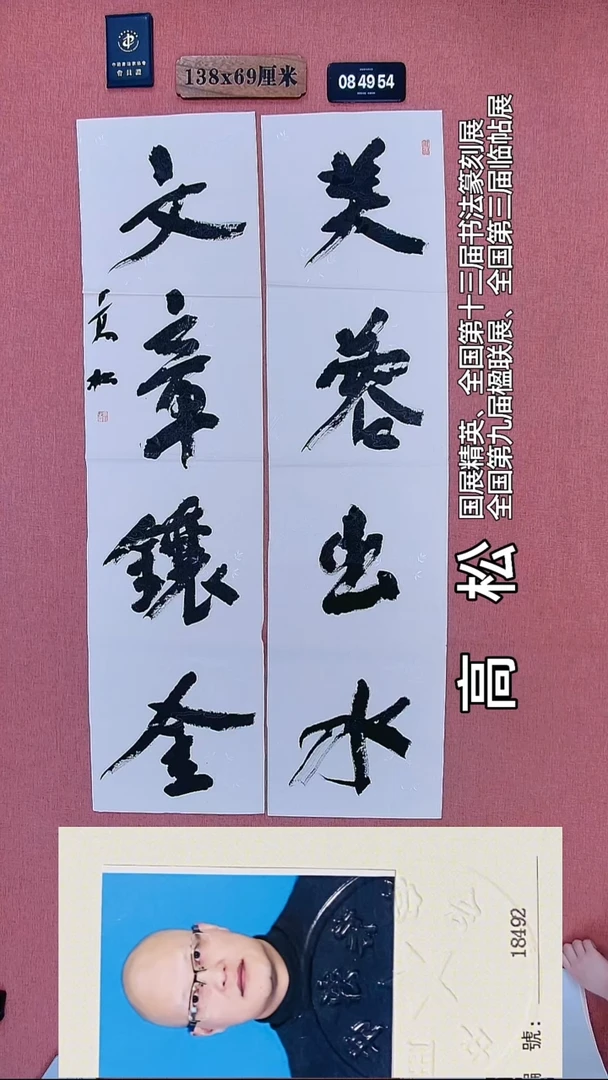 中國書法家協會
會員證
138x69厘米
08 49 54
芙蓉出水
文章鑲金
高松
国展精英、全国第十三届书法篆刻展
全国第九届楹联展、全国第三届临帖展
高 松
編 號: 18492